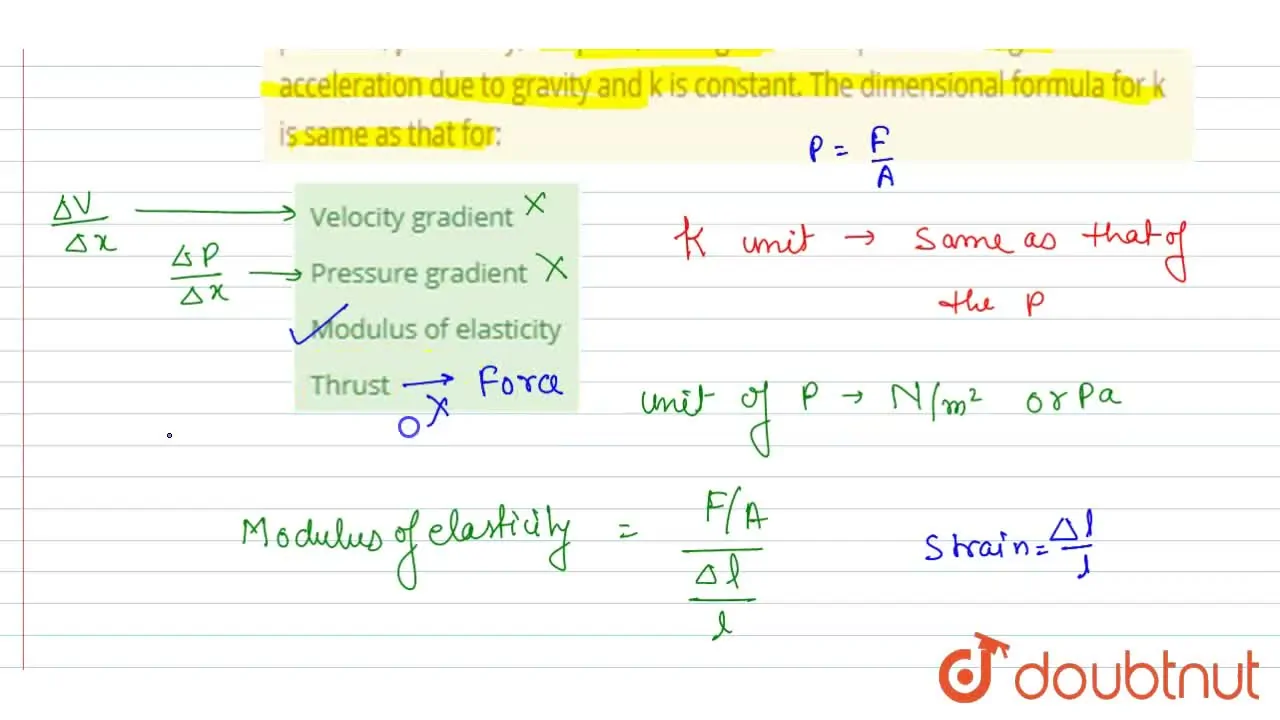 acceleration due to gravity and k is constant. The dimensional formula for k
is same as that for:
P = F/A
ΔV/Δx → Velocity gradient X
ΔP/Δx → Pressure gradient X
✓ Modulus of elasticity
Thrust → Force
X
K unit → Same as that of
the P
unit of P → N/m² or Pa
Modulus of elasticity = F/A / Δl/l
Strain = Δl/l
doubtnut